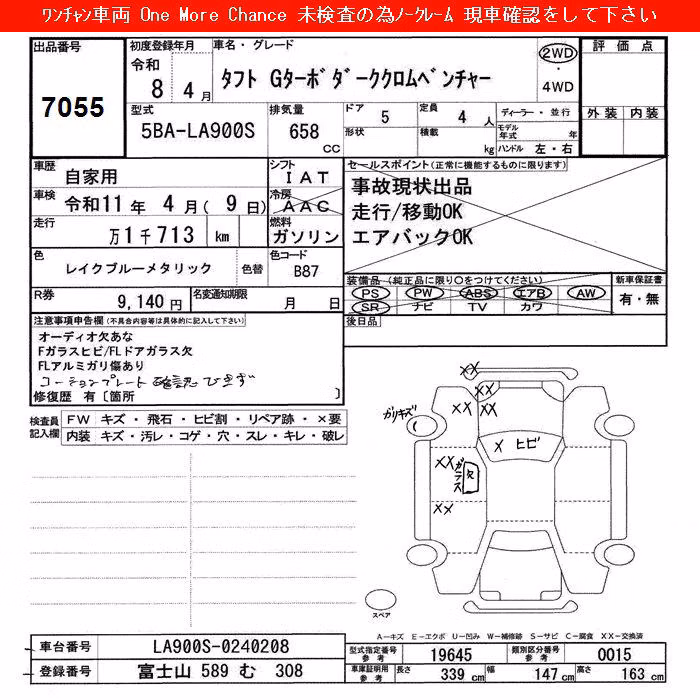 ワンチャン車両 One More Chance 未検査の為ノークレーム 現車確認をして下さい
出品番号
7055
初度登録年月
令和
8 4 月
車名・グレード
タフト Gターボダーククロムベンチャー
2WD
・
4WD
評価点
外装 内装
型式
5BA-LA900S
排気量
658
cc
ドア
5
形状
定員
4 人
積載
kg
ディーラー・並行
モデル年式
年
ハンドル 左・右
車歴
自家用
シフト
IAT
車検
令和11年 4月( 9日)
冷房
AAC
走行
万1千713 km
燃料
ガソリン
セールスポイント(正常に機能するものに限ります)
事故現状出品
走行/移動OK
エアバックOK
色
レイクブルーメタリック
色替
色コード
B87
R券
9,140 円
名変通知期限
月 日
装備品(純正品に限り○をつけてください)
PS PW ABS エアB AW
SR ナビ TV カワ
新車保証書
有・無
後日品
注意事項申告欄(不具合内容等は具体的に記入して下さい)
オーディオ欠あな
Fガラスヒビ/FLドアガラス欠
FLアルミガリ傷あり
コーションプレート確認できず
修復歴 有〔箇所 〕
検査員記入欄
FW キズ・飛石・ヒビ割・リペア跡・×要
内装 キズ・汚レ・コゲ・穴・スレ・キレ・破レ
XX
XX
XX
ガリキズ
X ヒビ
XX
ガラス
欠
XX
スペア
A－キズ E－エクボ U－凹み W－補修跡 S－サビ C－腐食 XX－交換済
車台番号
LA900S-0240208
登録番号
富士山 589 む 308
型式指定番号
参考
19645
類別区分番号
参考
0015
車庫証明用
参考
長さ
339 cm
幅
147 cm
高さ
163 cm